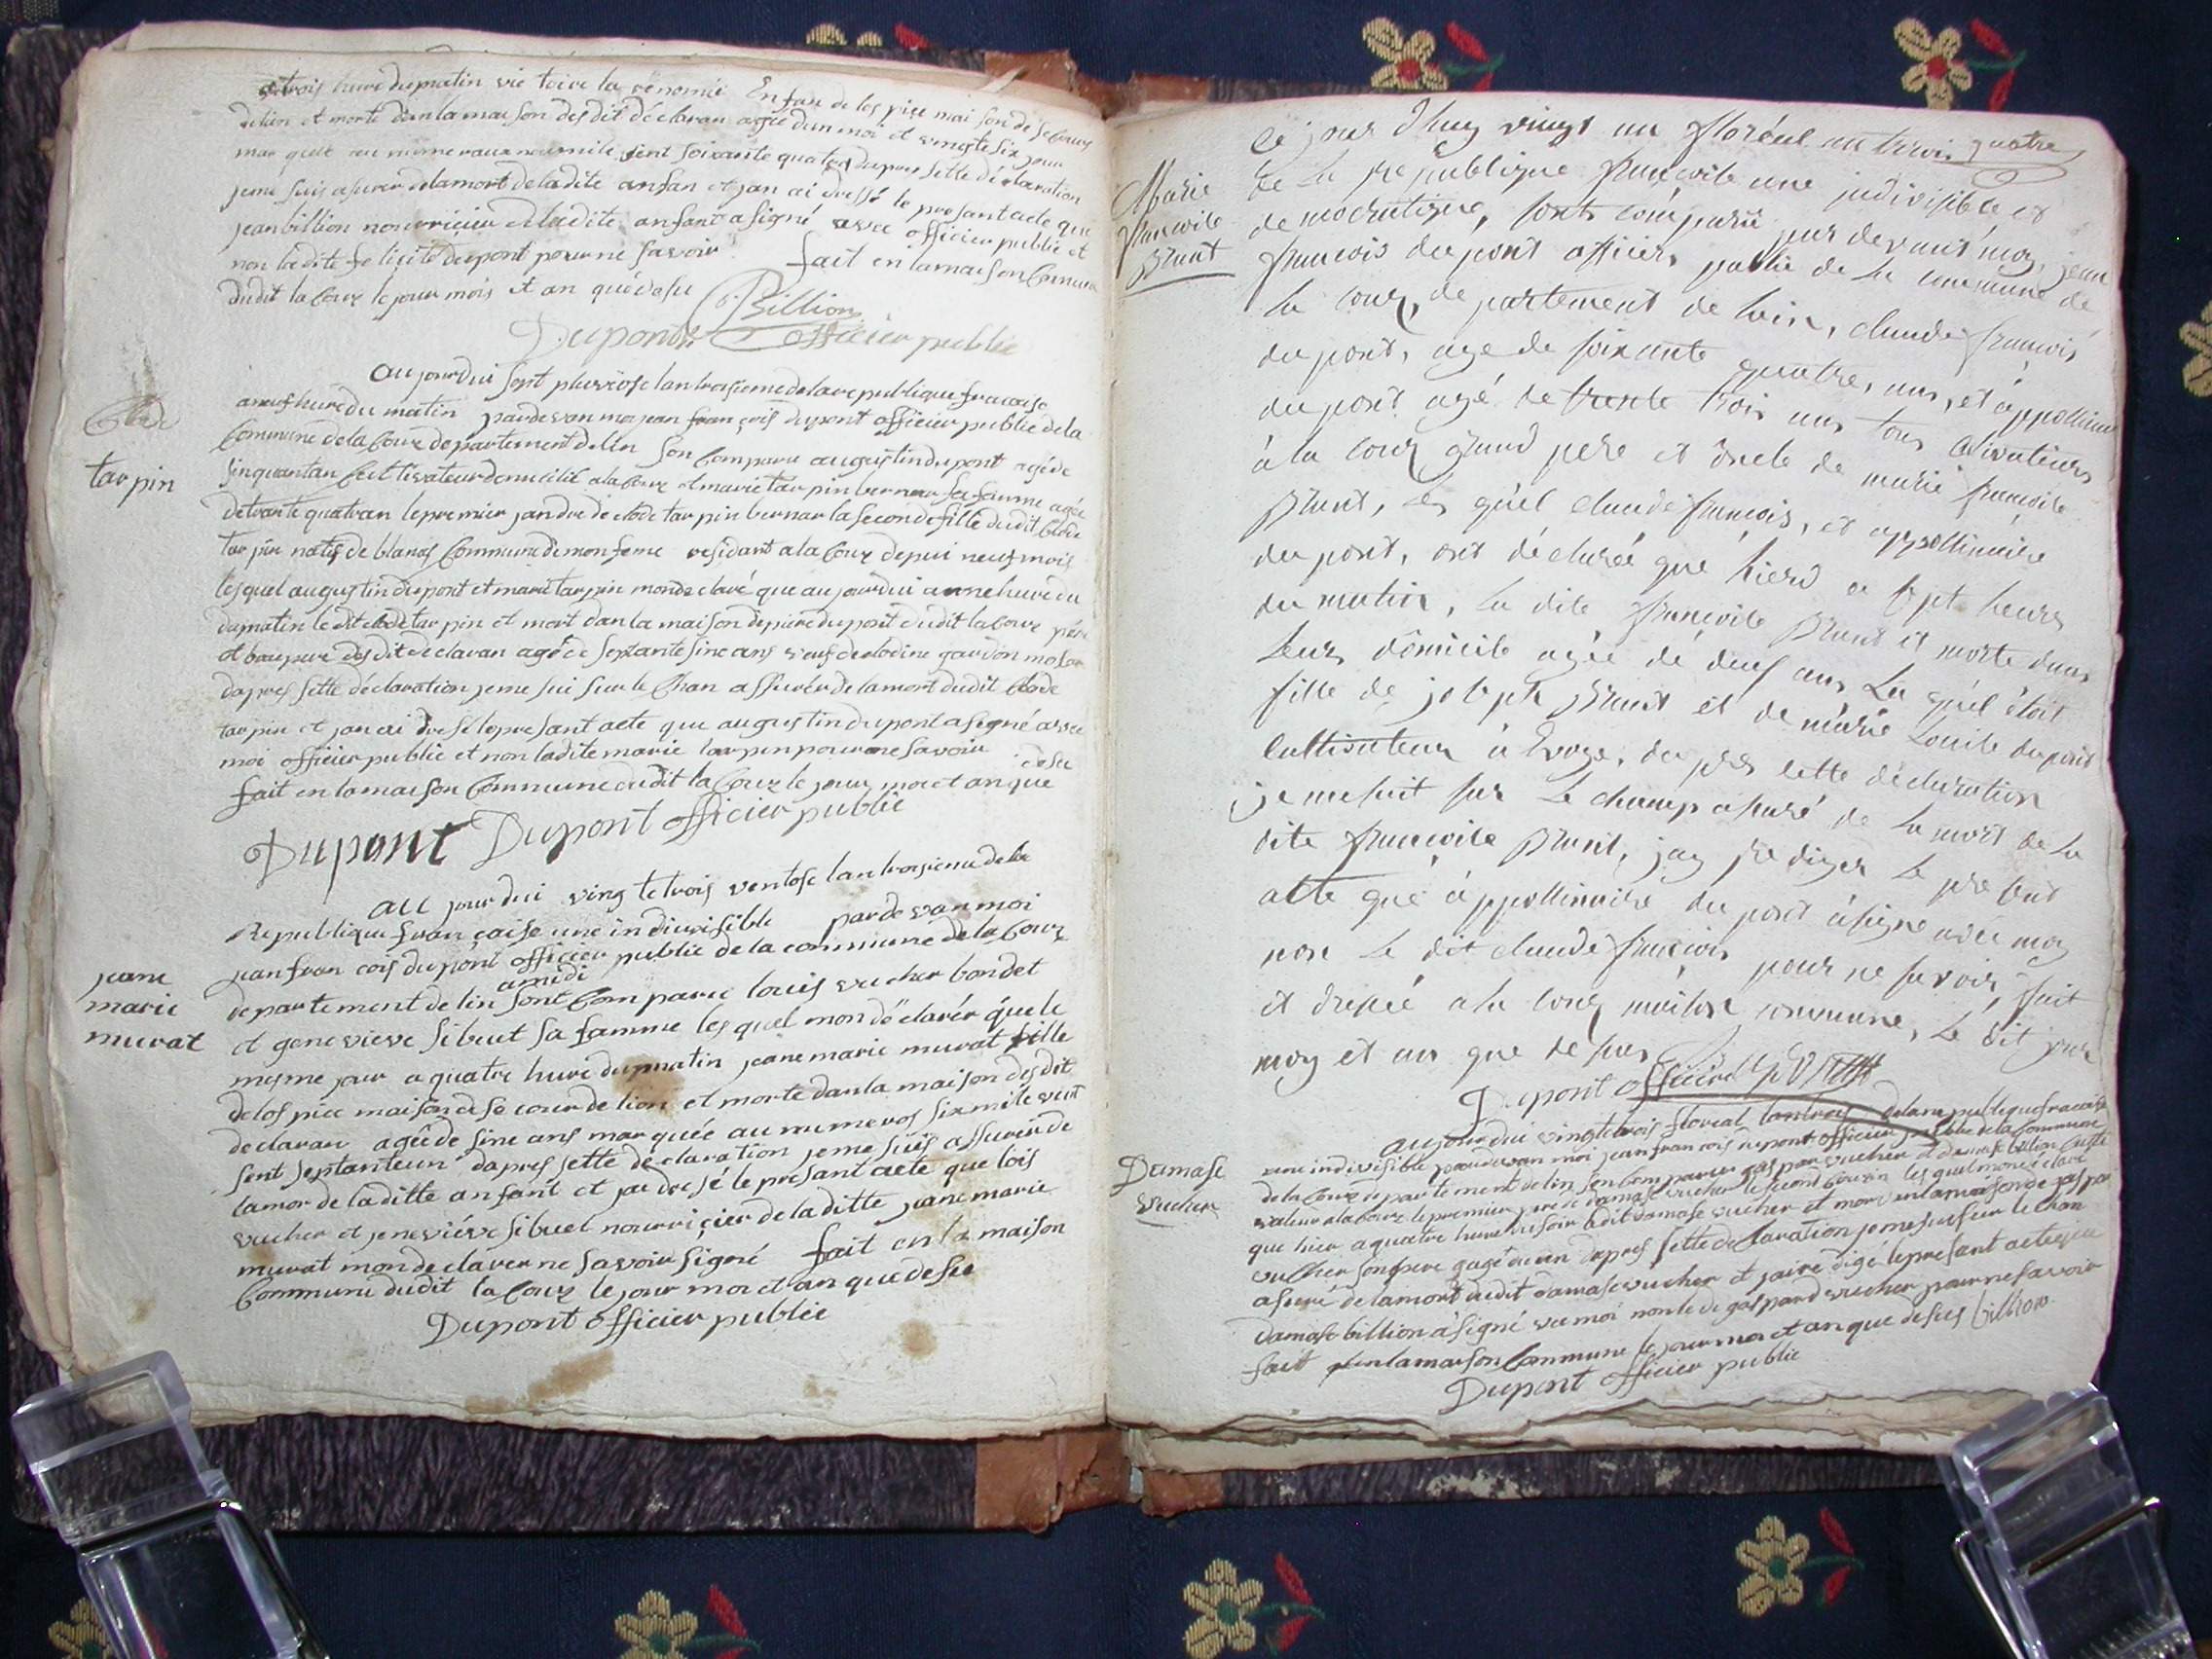 trois heure dumatin vic toire la renomé Enfan de los pice mai son de secours
delion et morte dan la maison des dit déclaran agée dun moi et vingte six jour
mar quée au numero sent soixante quatre dapres sette déclaration
jeme suis asurer delamort deladite anfan et jan ai dressé le presant acte que
jean billion nourricier deladite anfant a signé avec officier publie et
non ladite felicité dupont pour ne savoir fait en lamaison Commune
dudit la Coux le jour mois et an que desu Billion
Dupont officier publie
aujourdui sept pluviose lan troisieme delarepublique francaise
aneuf hure du matin pardevan moi jean françois dupont officier publie dela
Clode
Commune dela Coux departement delin son Comparu augustin dupont agé de
tarpin
sinquantan Cultivateur domicilié ala Coux et marie tarpin bernar sa famme agée
detrante quatran lepremier jandre de clode tarpin bernar la seconde fille dudit Clode
tarpin natif de blanas Commune de monferme residant ala Coux depui neuf mois
lesquel augustin dupont et marie tarpin monde claré que aujourdui a unne hure du
dumatin le dit clode tar pin et mort dan la maison de piere dupont dudit la Coux pere
et beaupere des dit declaran agé de septante sinc ans veuf de clodine
dapres sette déclaration jeme sui sur le Chan assurér de lamort dudit Clode
tarpin et jan ai dresé lepresant acte que augustin dupont a signé avec
moi officier publie et non ladite marie tarpin pour ne savoir
fait en lamaison Commune dudit la Coux le jour moi et an que desu
Dupont Dupont officier publie
au jourdui ving te trois ventose lan troisieme dela
Republique fran çaise une in divisible parde van moi
jeane
jean fran cois dupont officier publie de la commune dela Coux
amidi
marie
departement de lin sont Com parue louis vucher bondet
murat
et gene vieve sibuet sa famme les quel mon déclarér que le
mesme jour a quatre hure dumatin jeane marie murat fille
delos pice maison de se cour de lion et morte dan la maison des dit
declaran agée de sinc ans marquée au numeros six mile
sent septanteun dapres sette déclaration jeme suis assurér de
lamor de laditte anfant et jai dresé le presant acte que lois
vucher et jeneviéve sibuel nourriçier de laditte jeane marie
murat mon declarer ne savoir signé fait en la maison
Commune dudit la Coux le jour moi et an que desu
Dupont officier publie
ce jour dhuy vingt un floréal an trois quatre
Marie
de La republique françoise une indivisible et
francoise
démocratique, sonts comparu par devant moy, jean
Brunt
francois du pont officier public de La commune de
la coux, departement de lain, claude françois
du pont, age de soixante quatre, ans, et appollinaire
du pont agé de trente trois ans tous cultivateurs
à la coux grand pere et oncle de marie francoise
Brunt, les quel claude françois, et appollinaire
du pont, ont déclaréé que hierd a sept heures
du mattin, La dite françoise Brunt et morte dans
leurs domicile agée de deux ans La quel étoit
fille de joseph Brunt et de marie Louise dupont
cultivateur à Evoge, du pres cette déclaration
je mesuit sur Le champ asuré de La mort de La
dite francoise Brunt, jay re diger Le pre sent
acte que appollinaire du pont à signe avec moy
non Le dit claude françois pour ne savoir, fait
et dressé a la coux maison commune, Le dit jour
moy et an que desus
Dupont officier
aujourdui vingte trois floreal lantrois delare publique francaise
Damase
une indivisible pardevan moi jean francois dupont officier publie de la Commune
vucher
de la Coux departement delin son Comparu gaspar vucher et damase billion Culti
vateur ala Coux le premier pere de damase vucher le segont Cousin les quel monde claré
que hier a quatre hure du soir ledit damase vucher et mort en la maison de gaspar
vucher son pere agé du an dapres sette declaration jeme sui sur le Chan
asuré de lamort dudit damase vucher et jaire digé lepresant acte que
damase billion à signé avec moi non le dit gaspard vucher pour ne savoir
fait en lamaison Commune le jour moi et an que desus billion
Dupont officier publie